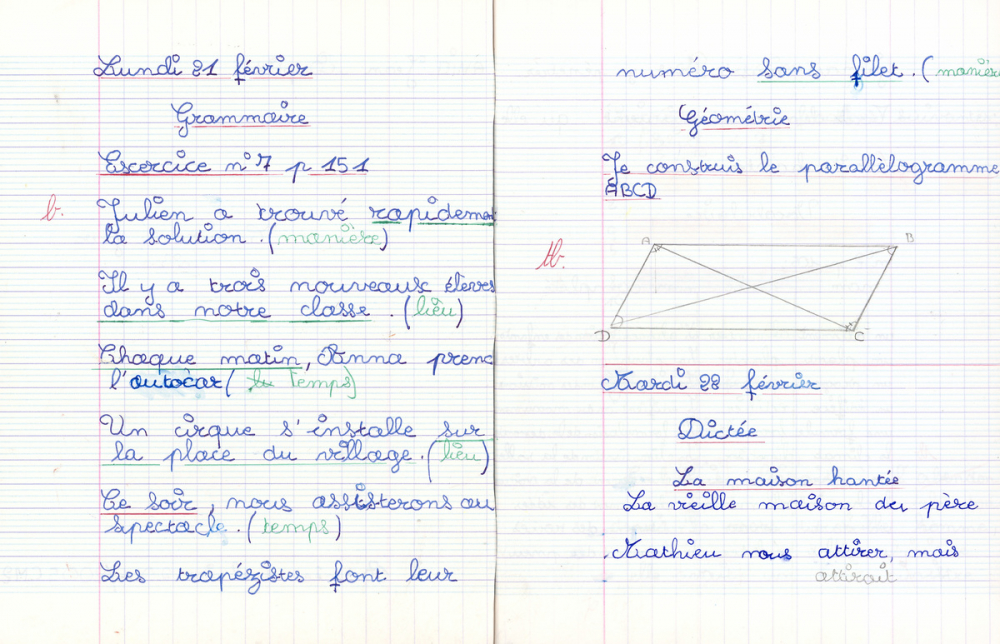 Lundi 21 février
Grammaire
Exercice n°7 p 151
b.
Julien a trouvé rapidement
la solution. (manière)
Il y a trois nouveaux élèves
dans notre classe. (lieu)
Chaque matin, Anna prend
l'autocar ( temps)
Un cirque s'installe sur
la place du village. (lieu)
Ce soir, nous assisterons au
spectacle. (temps)
Les trapézistes font leur
numéro sans filet. (manière
Géométrie
Je construis le parallèlogramme
ABCD
tb.
A B
D C
Mardi 22 février
Dictée
La maison hantée
La vieille maison du père
Mathieu nous attirer, mais
attirait